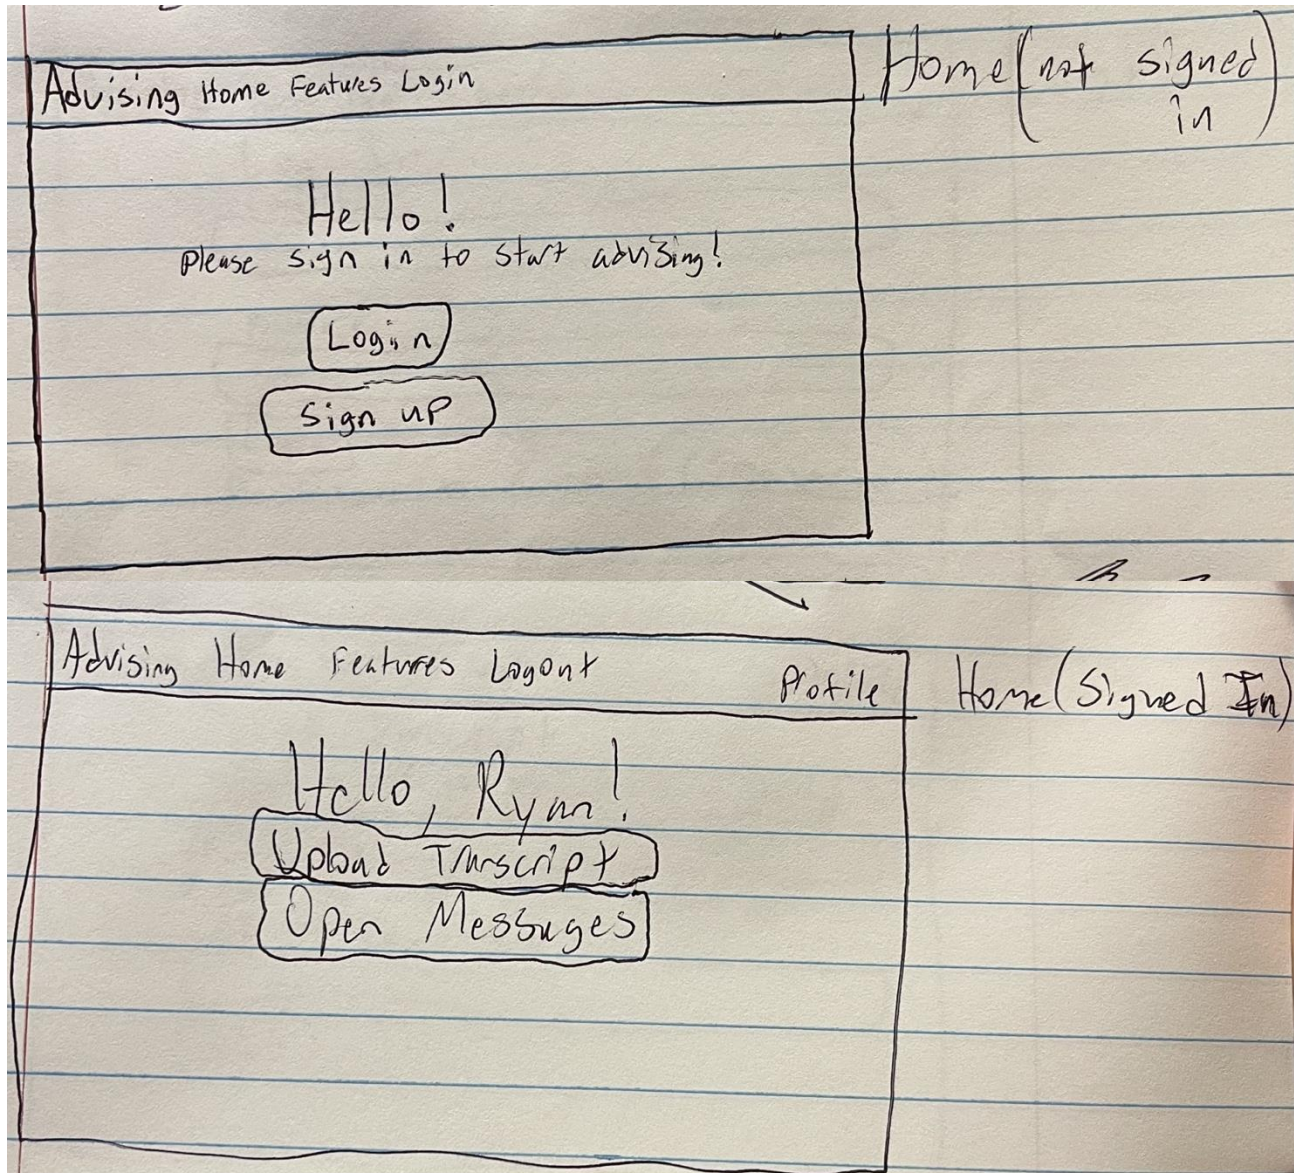 Advising Home Features Login
Home (not signed
in)
Hello!
Please sign in to start advising!
Login
Sign up
Advising Home Features Logout Profile
Home (Signed In)
Hello, Ryan!
Upload Transcript
Open Messages